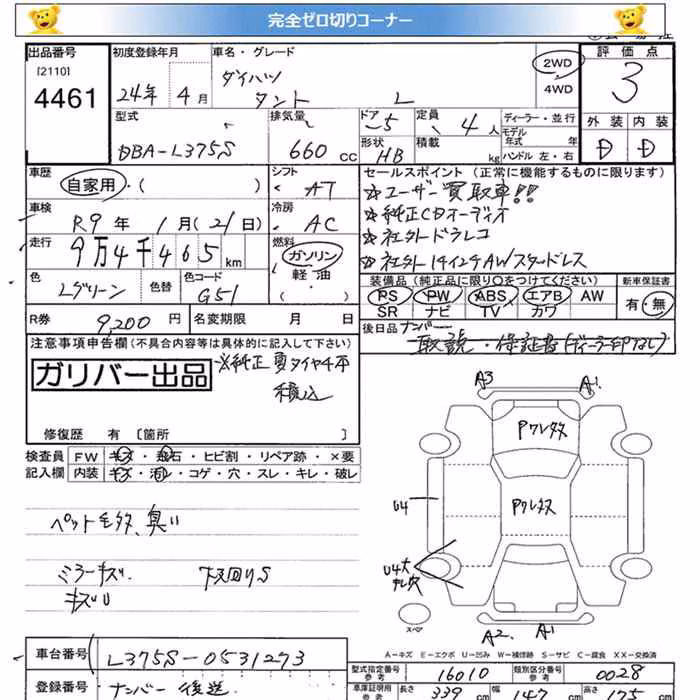 完全ゼロ切りコーナー
出品番号 初度登録年月 車名・グレード 評価点
[2110] 4461 24年 4月 ダイハツ タント L 2WD 4WD 3
型式 排気量 ドア 定員 ディーラー・並行 外装 内装
DBA-L375S 660cc 5 4人 モデル年式 年 D D
形状 HB 積載 kg ハンドル 左・右
車歴 自家用・( ) シフト AT
セールスポイント (正常に機能するものに限ります)
☆ユーザー買取車!!
車検 R9年 1月(21日) 冷房 AC
☆純正CDオーディオ
☆社外ドラレコ
走行 9万4千465km 燃料 ガソリン 軽油・( )
☆社外14インチAWスタッドレス
色 Lグリーン 色替 色コード G51
装備品 (純正品に限り○をつけてください) 新車保証書
PS PW ABS エアB AW 有・無
SR ナビ TV カワ
R券 9,200円 名変期限 月 日
後日品 ナンバー
取説・保証書(ディーラー印なし)
注意事項申告欄(不具合内容等は具体的に記入して下さい)
ガリバー出品 ※純正夏タイヤ4本
積込
修復歴 有 [箇所 ]
検査員 FW キズ・飛石・ヒビ割・リペア跡・×要
記入欄 内装 キズ・汚レ・コゲ・穴・スレ・キレ・破レ
ペット毛多、臭い
ミラーキズ 下回りS
キズU
A3 A1
Pワレタタス
U4
Pワレタタス
U4大
スペア
A2 A1
A－キズ E－エクボ U－凹み W－補修跡 S－サビ C－腐食 XX－交換済
車台番号 L375S-0531273
型式指定番号 参考 16010 類別区分番号 参考 0028
登録番号 ナンバー 後送
車庫証明用 参考 長さ 339cm 幅 147cm 高さ 175cm